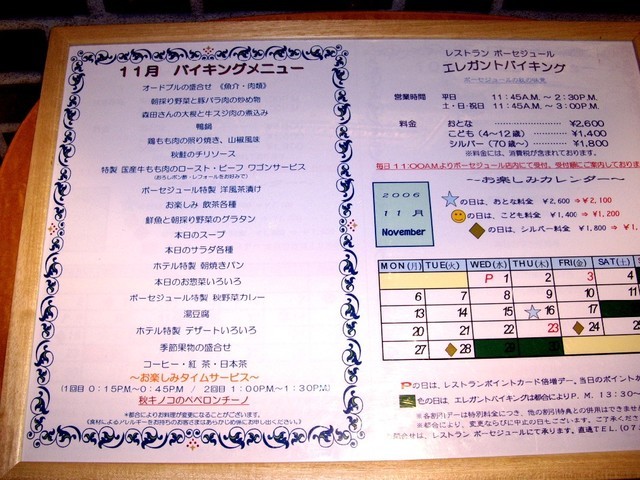 11月 バイキングメニュー
オードブルの盛合せ 《魚介・肉類》
朝採り野菜と豚バラ肉の炒め物
森田さんの大根と牛スジ肉の煮込み
鴨鍋
鶏もも肉の照り焼き、山椒風味
秋鮭のチリソース
特製 国産牛もも肉のロースト・ビーフ ワゴンサービス
(おろしポン酢・レフォールをお好みで)
ボーセジュール特製 洋風茶漬け
お楽しみ 飲茶各種
鮮魚と朝採り野菜のグラタン
本日のスープ
本日のサラダ各種
ホテル特製 朝焼きパン
本日のお惣菜いろいろ
ボーセジュール特製 秋野菜カレー
湯豆腐
ホテル特製 デザートいろいろ
季節果物の盛合せ
コーヒー・紅茶・日本茶
～お楽しみタイムサービス～
(1回目 0:15P.M～0:45P.M / 2回目 1:00P.M～1:30P.M)
秋キノコのペペロンチーノ
*都合によりお料理が変更になることがございます。
(食材によるアレルギーをお持ちのお客さまはあらかじめ係にお申し出ください。)
レストラン ボーセジュール
エレガントバイキング
営業時間 平日 11:45A.M.～2:30P.M.
土・日・祝日 11:45A.M.～3:00P.M.
料金 おとな ¥2,600
こども(4～12歳) ¥1,400
シルバー(70歳～) ¥1,800
※料金には、消費税が含まれております。
毎日11:00A.M.よりボーセジュール店内にて受付、受付順にご案内しており
～お楽しみカレンダー～
2006
11月
November
の日は、おとな料金 ¥2,600 ⇒¥2,100
の日は、こども料金 ¥1,400 ⇒¥1,200
の日は、シルバー料金 ¥1,800 ⇒¥1,
MON(月) TUE(火) WED(水) THU(木) FRI(金) SAT(土)
P 1 2 3 4
6 7 8 9 10 11
13 14 15 16 17
20 21 22 23 24
27 28 29 30
Pの日は、レストランポイントカード倍増デー。当日のポイントか
色の日は、エレガントバイキングは都合によりP.M.13:30～
※各割引デーは特別料金につき、他の割引特典との併用はできませ
※都合により、変更ならびに中止の日もございます。ご了承くださ
問合せは、レストラン ボーセジュールにて承ります。直通TEL.(07